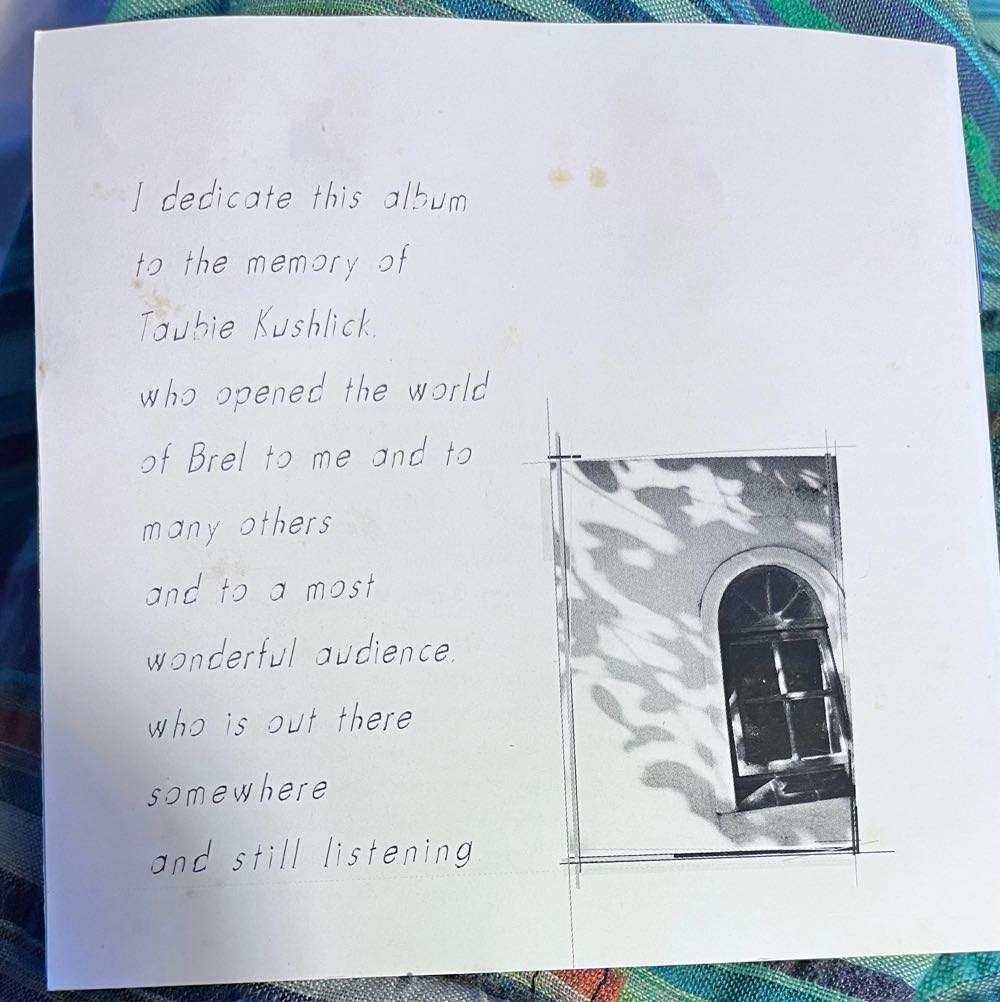 I dedicate this album
to the memory of
Taubie Kushlick,
who opened the world
of Brel to me and to
many others
and to a most
wonderful audience,
who is out there
somewhere
and still listening